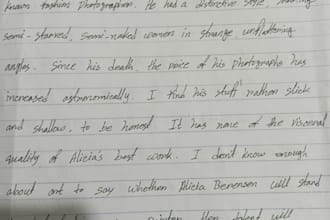 known fashion photographer. He had a distinctive style, shooting
semi-starved, semi-naked women in strange unflattering
angles. Since his death, the price of his photographs has
increased astronomically. I find his stuff rather slick
and shallow, to be honest. It has none of the visceral
quality of Alicia's best work. I don't know enough
about art to say whether Alicia Berenson will stand
painter. Her talent will